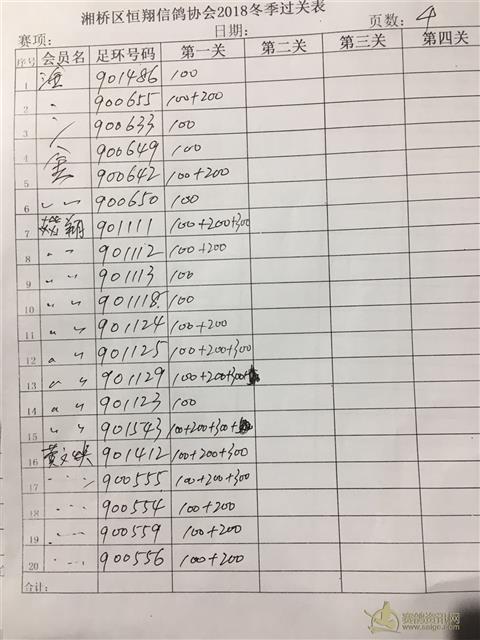 湘桥区恒翔信鸽协会2018冬季过关表
赛项: 日期: 页数: 4
序号 会员名 足环号码 第一关 第二关 第三关 第四关
1 901486 100
2 〃 900655 100+200
3 900633 100
4 900649 100
5 900642 100+200
6 〃 〃 900650 100
7 翔 901111 100+200+300
8 〃 〃 901112 100+200
9 〃 〃 901113 100
10 〃 〃 901118 100
11 〃 〃 901124 100+200
12 〃 〃 901125 100+200+300
13 〃 〃 901129 100+200+300
14 〃 〃 901123 100
15 〃 〃 901543 100+200+300+
16 黄文 901412 100+200+300
17 〃 〃 〃 900555 100+200+300
18 〃 〃 〃 900554 100+200
19 〃 〃 〃 900559 100+200
20 〃 〃 〃 900556 100+200
合计:
赛鸽资讯网
www.saige.com